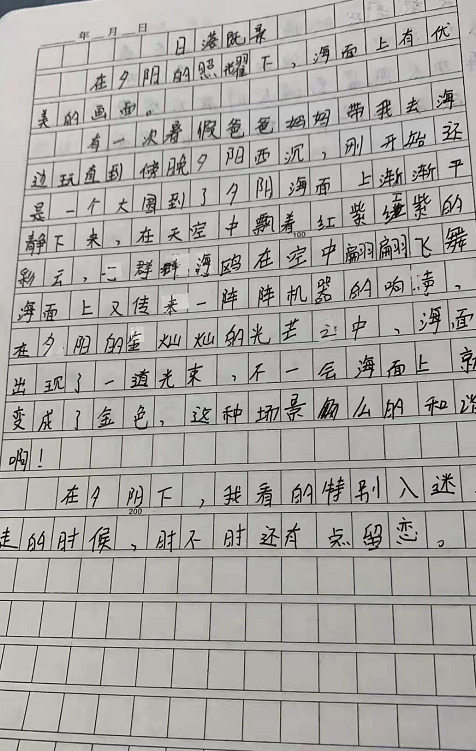 年 月 日
日落既景
在夕阳的照耀下，海面上有优
美的画面。
有一次暑假爸爸妈妈带我去海
边玩直到傍晚夕阳西沉，刚开始还
是一个大圆到了夕阳海面上渐渐平
静下来，在天空中飘着红紫紫的
100
彩云，一群群海鸥在空中翩翩飞舞
海面上又传来一阵阵机器的响渎，
在夕阳的金灿灿的光芒之中，海面
出现了一道光束，不一会海面上就
变成了金色，这种场景多么的和谐
啊！
在夕阳下，我看的特别入迷，
200
走的时候，时不时还有点留恋。